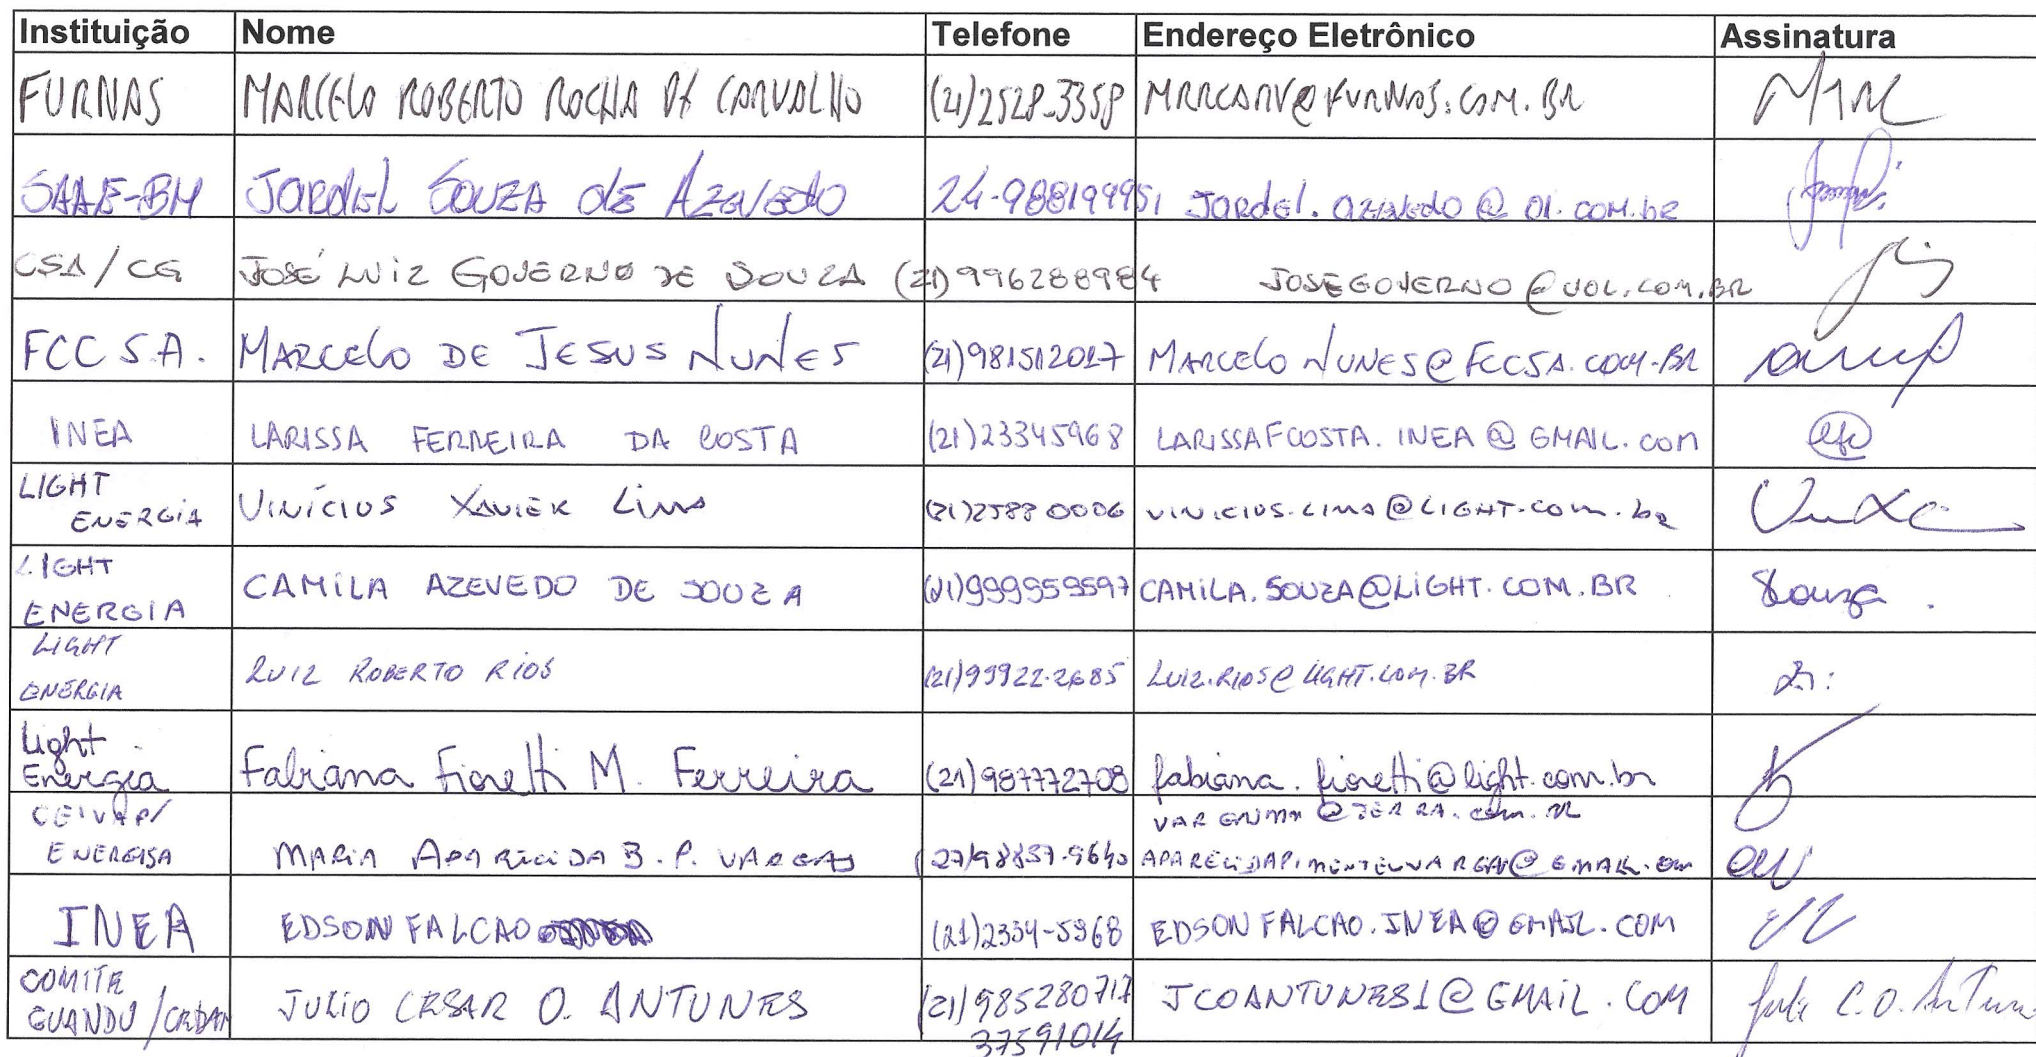 Instituição Nome Telefone Endereço Eletrônico Assinatura
FURNAS MARCELO ROBERTO ROCHA DE CARVALHO (21)2528-3358 MRRCARV@FURNAS.COM.BR
SAAE-BM Jardel Souza de Azevedo 24-988199951 Jardel.azevedo@oi.com.br
CSA/CG JOSÉ LUIZ GOVERNO DE SOUZA (21)996288984 JOSEGOVERNO@UOL.COM.BR
FCC S.A. MARCELO DE JESUS NUNES (21)981512017 MARCELO NUNES@FCCSA.COM-BR
INEA LARISSA FERREIRA DA COSTA (21)23345968 LARISSAFCOSTA.INEA@GMAIL.COM
LIGHT
ENERGIA VINÍCIUS XAVIER LIMA (21)2588 0006 VINICIUS.LIMA@LIGHT.COM.br
LIGHT
ENERGIA CAMILA AZEVEDO DE SOUZA (21)999959597 CAMILA.SOUZA@LIGHT.COM.BR Souza.
LIGHT
ENERGIA LUIZ ROBERTO RIOS (21)99922-2685 LUIZ.RIOS@LIGHT.COM.BR
Light
Energia Fabiana Fioretti M. Ferreira (21)987772708 fabiana.fioretti@light.com.br
CEIVAP/
ENERGISA MARIA APARECIDA B. P. VARGAS APARECIDAPIMENTELVARGAS@GMAIL.COM
INEA EDSON FALCAO (21)2334-5968 EDSONFALCAO.INEA@GMAIL.COM
COMITE
GUANDU/CEDAE JULIO CESAR O. ANTUNES (21)985280717 JCOANTUNES1@GMAIL.COM Julio C.O. Antunes
37591014